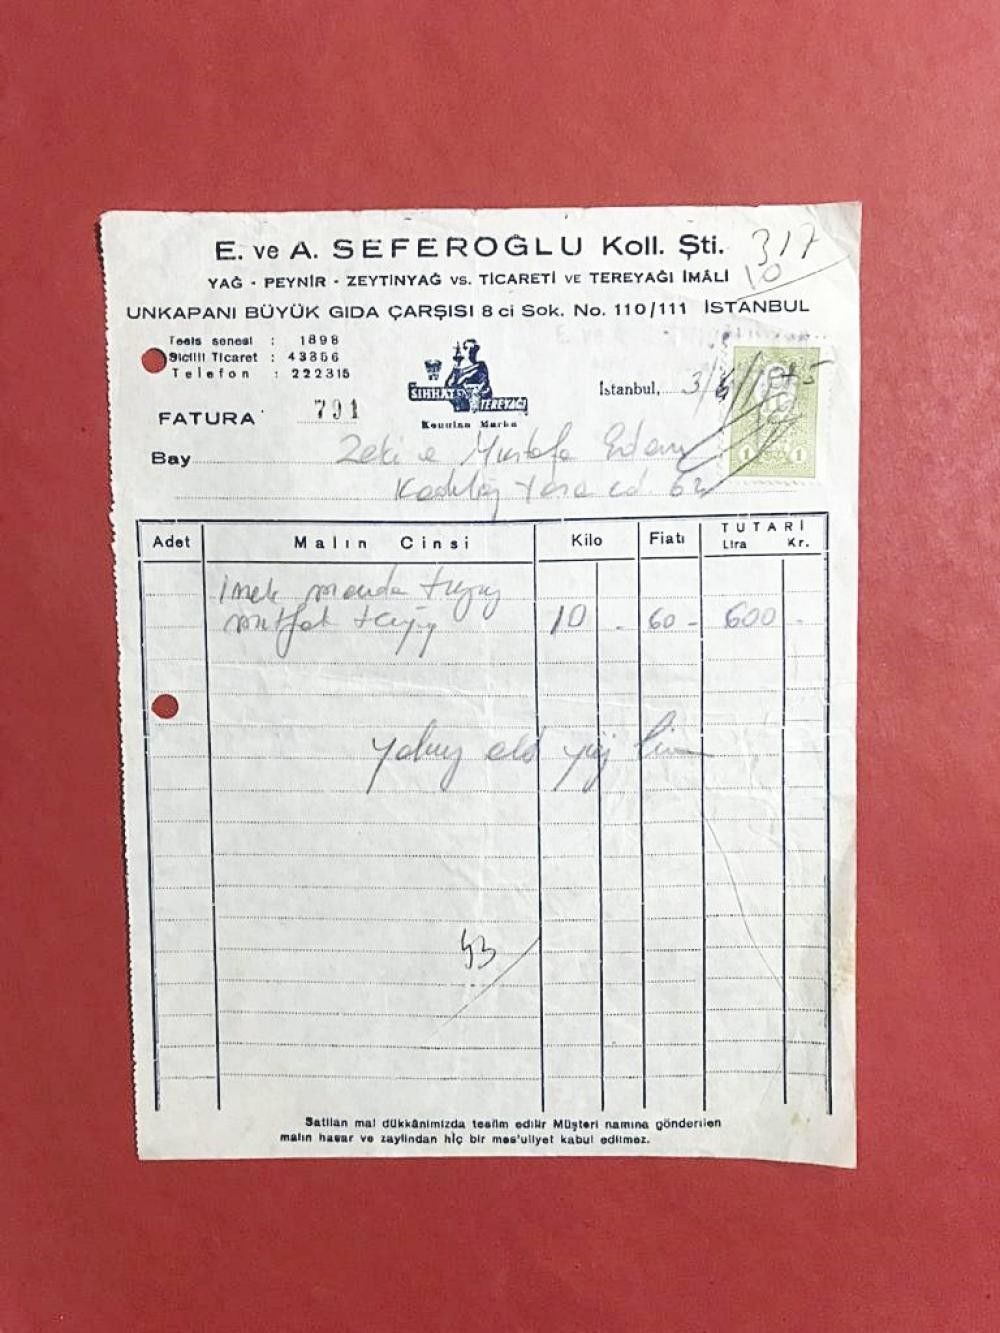 E. ve A. SEFEROĞLU Koll. Şti.
317
10
YAĞ - PEYNİR - ZEYTİNYAĞ VS. TİCARETİ VE TEREYAĞI İMÂLİ
UNKAPANI BÜYÜK GIDA ÇARŞISI 8 ci Sok. No. 110/111 İSTANBUL
Tesis senesi : 1898
Sicilli Ticaret : 43356
Telefon : 222315
SIHHAT TEREYAĞI
Marka
İstanbul, 3/4/
FATURA 791
1 1
Bay Zeki Mustafa Erdem
Kadıköy 62
Adet Malın Cinsi Kilo Fiatı TUTARI
Lira Kr.
İnek manda
mutfak 10 - 60 - 600 -
Yalnız
Satılan mal dükkânımızda teslim edilir Müşteri namına gönderilen
malın hasar ve zayiinden hiç bir mes'uliyet kabul edilmez.